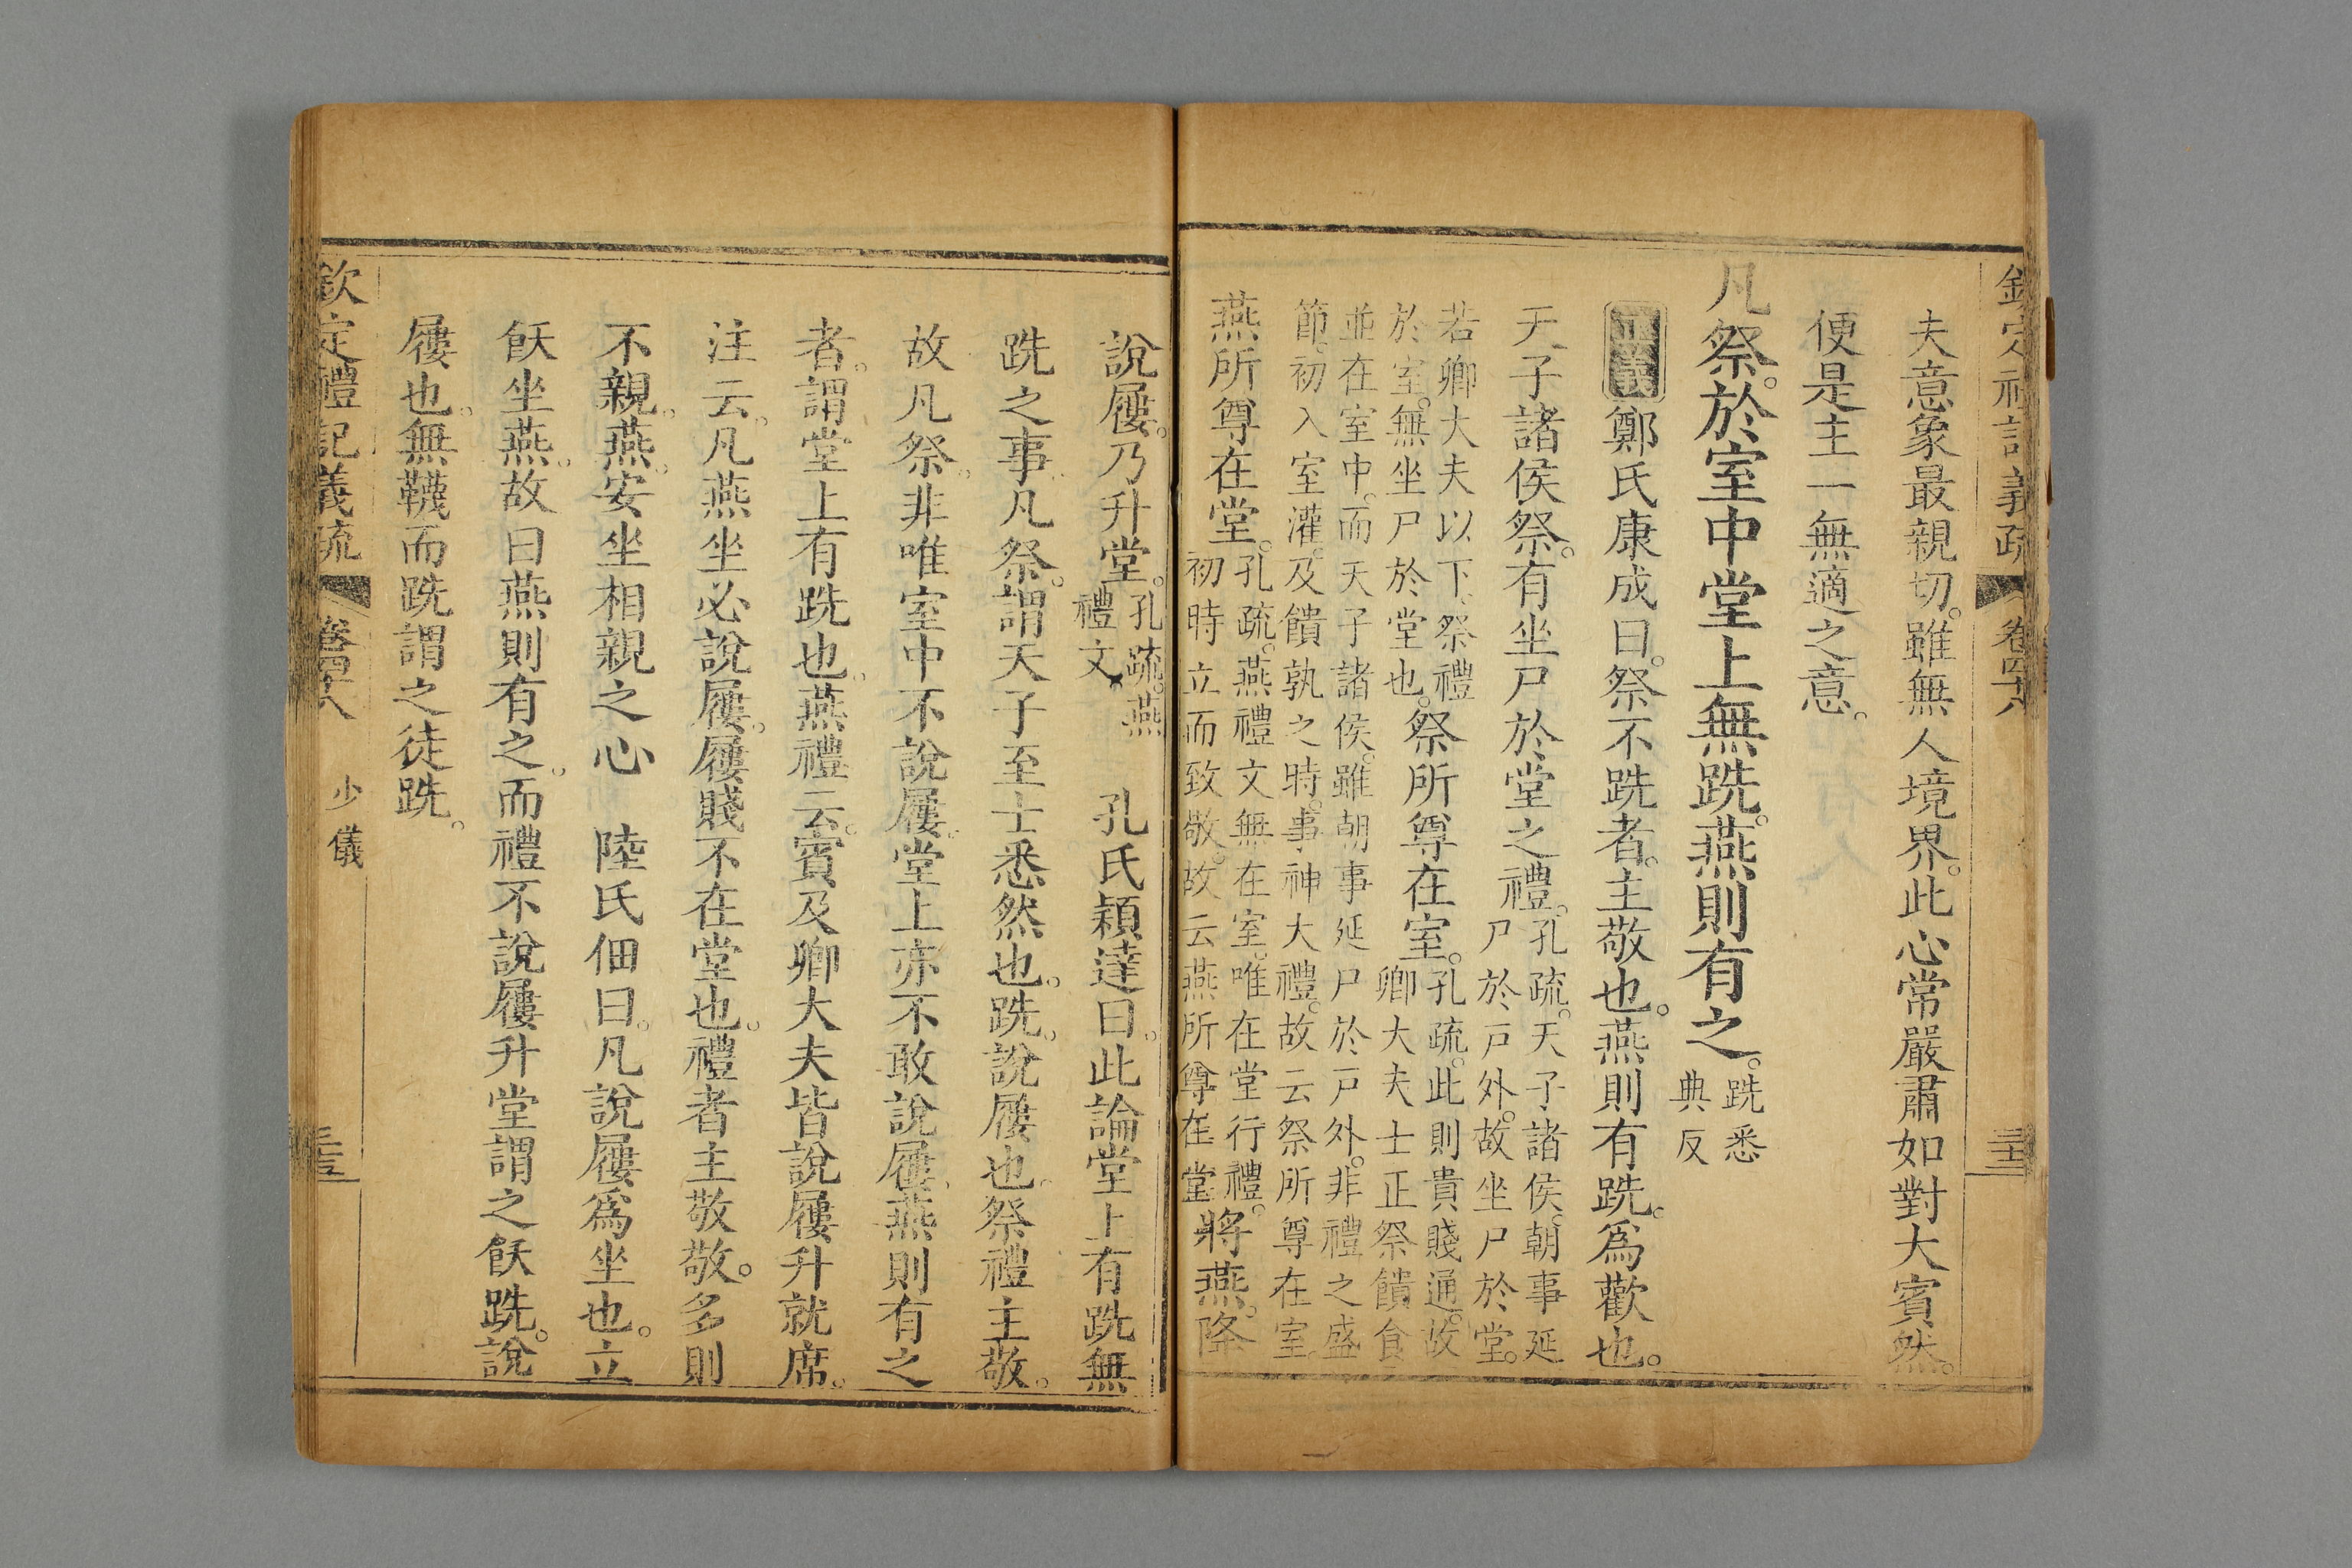 欽定禮記義疏 卷四十八 三十三
夫意象最親切。雖無人境界。此心常嚴肅如對大賓然。
便是主一無適之意。
凡祭。於室中堂上無跣。燕則有之。跣悉典反
正義鄭氏康成曰。祭不跣者。主敬也。燕則有跣。為歡也。
天子諸侯祭。有坐尸於堂之禮。孔疏。天子諸侯。朝事延尸於戶外。故坐尸於堂。
若卿大夫以下。祭禮於室。無坐尸於堂也。祭所尊在室。孔疏。此則貴賤通。故卿大夫士正祭饋食
並在室中。而天子諸侯。雖朝事延尸於戶外。非禮之盛節。初入室灌。及饋孰之時。事神大禮。故云祭所尊在室。
燕所尊在堂。孔疏。燕禮文無在室。唯在堂行禮。初時立而致敬。故云燕所尊在堂將燕。降
說屨。乃升堂。孔疏。燕禮文。 孔氏穎達曰。此論堂上有跣無
跣之事。凡祭。謂天子至士悉然也。跣。說屨也。祭禮主敬。
故凡祭。非唯室中不說屨。堂上亦不敢說屨。燕則有之
者。謂堂上有跣也。燕禮云。賓及卿大夫皆說屨升就席。
注云。凡燕坐必說屨。屨賤不在堂也。禮者主敬敬。多則
不親。燕。安坐相親之心 陸氏佃曰。凡說屨為坐也。立
飫坐燕。故曰燕則有之。而禮不說屨升堂謂之飫跣。說
屨也。無韈而跣謂之徒跣。
欽定禮記義疏 卷四十八 少儀 三十三